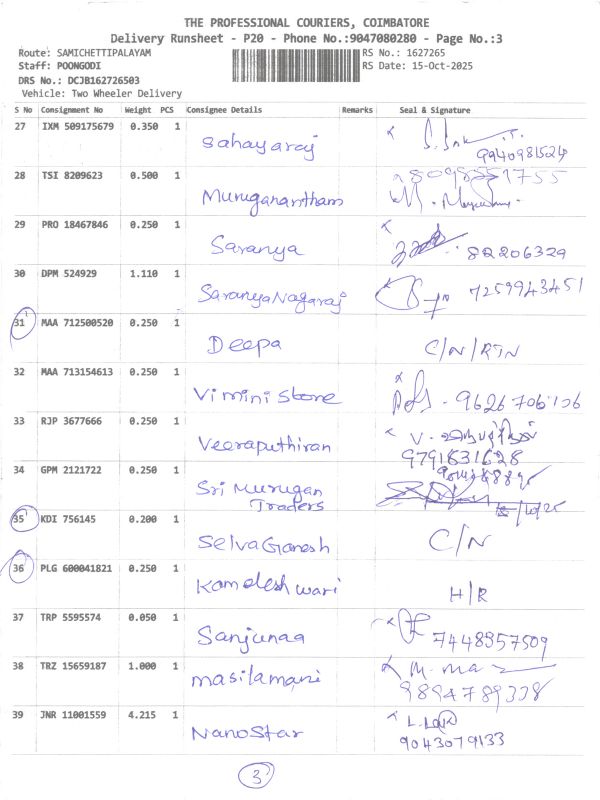 THE PROFESSIONAL COURIERS, COIMBATORE
Delivery Runsheet - P20 - Phone No.:9047080280 - Page No.:3
Route: SAMICHETTIPALAYAM RS No.: 1627265
Staff: POONGODI RS Date: 15-Oct-2025
DRS No.: DCJB162726503
Vehicle: Two Wheeler Delivery
S No Consignment No Weight PCS Consignee Details Remarks Seal & Signature
27 IXM 509175679 0.350 1 Sahayaraj
9940981524
28 TSI 8209623 0.500 1 Muruganantham
29 PRO 18467846 0.250 1 Saranya 82206329
30 DPM 524929 1.110 1 SaranyaNagaraj 7259943451
31 MAA 712500520 0.250 1 Deepa C/N/RTN
32 MAA 713154613 0.250 1 Vimini Store
33 RJP 3677666 0.250 1 Veeraputhiran
9791631628
34 GPM 2121722 0.250 1 Sri Murugan
Traders
35 KDI 756145 0.200 1 SelvaGanesh C/N
36 PLG 600041821 0.250 1 Kamaleshwari H/R
37 TRP 5595574 0.050 1 Sanjunaa 7448357509
38 TRZ 15659187 1.000 1 masilamani
9894789338
39 JNR 11001559 4.215 1 NanoStar
9043079133
3